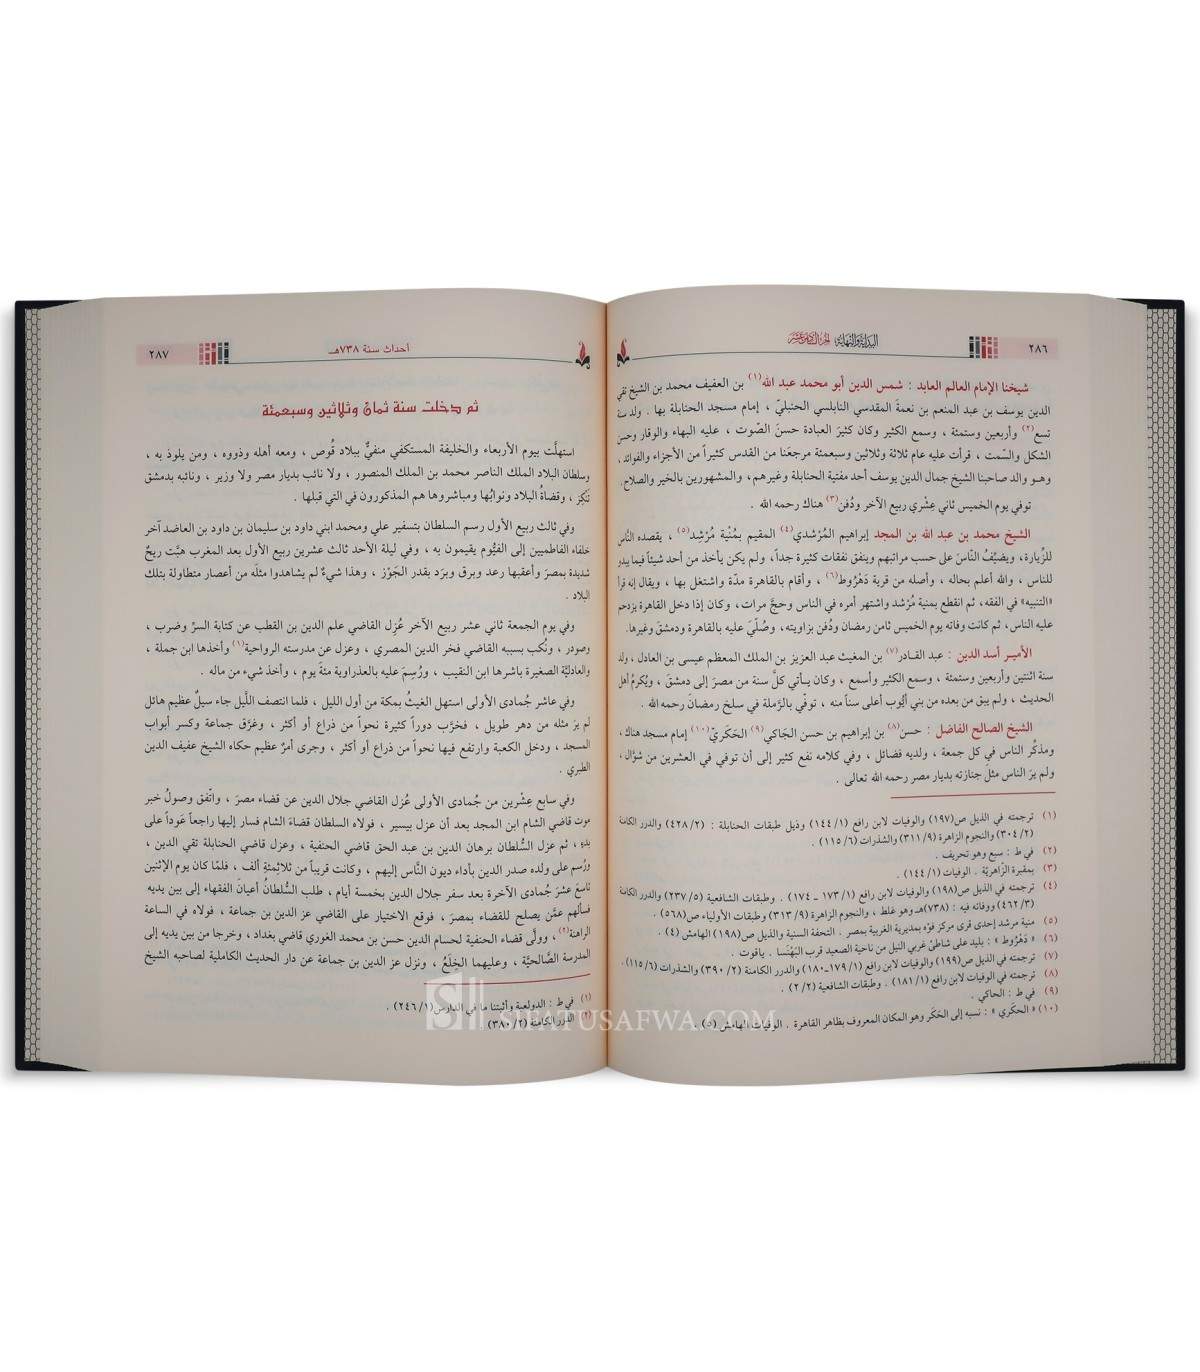 ٢٨٦
البداية والنهاية
شيخنا الإمام العالم العابد : شمس الدين أبو محمد عبد الله(١) بن العفيف محمد بن الشيخ تقي
الدين يوسف بن عبد المنعم بن نعمة المقدسي النابلسي الحنبليّ ، إمام مسجد الحنابلة بها . ولد سنة
تسع(٢) وأربعين وستمئة ، وسمع الكثير وكان كثيرَ العبادة حسنَ الصّوت ، عليه البهاء والوقار وحسن
الشكل والسّمت ، قرأت عليه عام ثلاثة وثلاثين وسبعمئة مرجعَنا من القدس كثيراً من الأجزاء والفوائد ،
وهـو والد صاحبنا الشيخ جمال الدين يوسف أحد مفتية الحنابلة وغيرهم ، والمشهورين بالخير والصلاح .
توفي يوم الخميس ثاني عِشْري ربيع الآخر ودُفن(٣) هناك رحمه الله .
الشيخ محمد بن عبد الله بن المجد إبراهيم المُرْشدي(٤) المقيم بمُنْية مُرْشِد(٥) ، يقصده النَّاس
للزِّيارة، ويضيِّفُ النّاسَ على حسب مراتبهم وينفق نفقات كثيرة جداً، ولم يكن يأخذ من أحد شيئاً فيما يبدو
للناس ، والله أعلم بحاله ، وأصله من قرية دَهْرُوط(٦) ، وأقام بالقاهرة مدّة واشتغل بها ، ويقال إنه قرأ
«التنبيه» في الفقه، ثم انقطع بمنية مُرْشد واشتهر أمره في الناس وحجَّ مرات، وكان إذا دخل القاهرة يزدحم
عليه الناس، ثم كانت وفاته يوم الخميس ثامن رمضان ودُفن بزاويته، وصُلّيَ عليه بالقاهرة ودمشقَ وغيرها.
الأميـر أسد الدين : عبد القـادر(٧) بن المغيث عبد العزيز بن الملك المعظم عيسى بن العادل ، ولد
سنة اثنتين وأربعين وستمئة ، وسمع الكثير وأسمع ، وكان يـأتي كلَّ سنة من مصرَ إلى دمشقَ ، ويُكرمُ أهل
الحديث ، ولم يبق من بعده من بني أيُّوب أعلى سناً منه ، توفّي بالرَّملة في سلخ رمضانَ رحمه الله .
الشيخ الصالح الفاضل : حسن(٨) بن إبراهيم بن حسن الجَاكي(٩) الحَكَريّ(١٠) إمام مسجد هناك ،
ومذكِّر الناس في كل جمعة ، ولديه فضائل ، وفي كلامه نفع كثير إلى أن توفي في العشرين من شوَّال ،
ولم يرَ الناس مثلَ جنازته بديار مصر رحمه الله تعالى .
(١) ترجمته في الذيل ص(١٩٧) والوفيات لابن رافع (١/ ١٤٤) وذيل طبقات الحنابلة : (٢/ ٤٢٨) والدرر الكامنة
(٢/ ٣٠٤) والنجوم الزاهرة (٩/ ٣١١) والشذرات (٦/ ١١٥) .
(٢) في ط : سبع وهو تحريف .
(٣) بمقبرة الزّاهريّة . الوفيات (١/ ١٤٤) .
(٤) ترجمته في الذيل ص(١٩٨) والوفيات لابن رافع (١/ ١٧٣ ـ ١٧٤) . وطبقات الشافعية (٥/ ٢٣٧) والدرر الكامنة
(٣/ ٤٦٢) ووفاته فيه : (٧٣٨)هـ وهو غلط ، والنجوم الزاهرة (٩/ ٣١٣) وطبقات الأولياء ص(٥٦٨) .
(٥) منية مرشد إحدى قرى مركز فوّه بمديرية الغربية بمصر . التحفة السنية والذيل ص(١٩٨) الهامش (٤) .
(٦) « دَهْرُوط » : بليد على شاطئ غربي النيل من ناحية الصعيد قرب البَهْنَسا . ياقوت .
(٧) ترجمته في الذيل ص(١٩٩) والوفيات لابن رافع (١/ ١٧٩ـ١٨٠) والدرر الكامنة (٢/ ٣٩٠) والشذرات (٦/ ١١٥) .
(٨) ترجمته في الوفيات لابن رافع (١/ ١٨١) . وطبقات الشافعية (٢/ ٢) .
(٩) في ط : الحاكي .
(١٠) « الحكَري » : نسبه إلى الحَكَر وهو المكان المعروف بظاهر القاهرة . الوفيات الهامش (٥) .
أحداث سنة ٧٣٨هـ
٢٨٧
ثم دخلت سنة ثمانٍ وثلاثين وسبعمئة
استهلَّت بيوم الأربعاء والخليفة المستكفي منفيٌّ ببلاد قُوص ، ومعه أهله وذووه ، ومن يلوذ به ،
وسلطان البلاد الملك الناصر محمد بن الملك المنصور ، ولا نائب بديار مصر ولا وزير ، ونائبه بدمشق
تنكز ، وقضاةُ البلاد ونوابُها ومباشروها هم المذكورون في التي قبلها .
وفي ثالث ربيع الأول رسم السلطان بتسفير علي ومحمد ابني داود بن سليمان بن داود بن العاضد آخر
خلفاء الفاطميين إلى الفيُّوم يقيمون به ، وفي ليلة الأحد ثالث عشرين ربيع الأول بعد المغرب هبَّت ريحٌ
شديدة بمصرَ وأعقبها رعد وبرق وبرَد بقدر الجَوْز ، وهذا شيءٌ لم يشاهدوا مثلَه من أعصار متطاولة بتلك
البلاد .
وفي يوم الجمعة ثاني عشر ربيع الآخر عُزل القاضي علم الدين بن القطب عن كتابة السرِّ وضرب ،
وصودر ، ونُكب بسببه القاضي فخر الدين المصري ، وعزل عن مدرسته الرواحية(١) وأخذها ابن جملة ،
والعادليَّة الصغيرة باشرها ابن النقيب ، ورُسِمَ عليه بالعذراوية مئةَ يوم ، وأخذ شيء من ماله .
وفي عاشر جُمادى الأولى استهل الغيثُ بمكة من أول الليل ، فلما انتصف اللَّيل جاء سيلٌ عظيم هائل
لم يرَ مثله من دهر طويل ، فخرَّب دوراً كثيرة نحواً من ذراع أو أكثر ، وغرَّق جماعة وكسر أبواب
المسجد ، ودخل الكعبة وارتفع فيها نحواً من ذراع أو أكثر ، وجرى أمرٌ عظيم حكاه الشيخ عفيف الدين
الطبري .
وفي سابع عِشْرين من جُمادى الأولى عُزل القاضي جلال الدين عن قضاء مصرَ ، واتّفق وصولُ خبر
موت قاضي الشام ابن المجد بعد أن عزل بيسير ، فولاه السلطان قضاءَ الشام فسار إليها راجعاً عَوداً على
بدءِ ، ثم عزل السُّلطان برهان الدين بن عبد الحق قاضي الحنفية ، وعزل قاضي الحنابلة تقي الدين ،
ورُسم على ولده صدر الدين بأداء ديون النَّاس إليهم ، وكانت قريباً من ثلاثمِئةِ ألف ، فلمّا كان يوم الإثنين
تاسعَ عشرَ جُمادى الآخرة بعد سفر جلال الدين بخمسة أيام ، طلب السُّلطانُ أعيانَ الفقهاء إلى بين يديه
فسألهم عمَّن يصلح للقضاء بمصرَ ، فوقع الاختيار على القاضي عز الدين بن جماعة ، فولاه في الساعة
الراهنة(٢) ، وولَّى قضاء الحنفية لحسام الدين حسن بن محمد الغوري قاضي بغداد ، وخرجا من بين يديه إلى
المدرسة الصَّالحيَّة ، وعليهما الخِلَعُ ، ونزل عز الدين بن جماعة عن دار الحديث الكاملية لصاحبه الشيخ
(١) في ط : الدولعية وأثبتنا ما في الدارس (١/ ٢٤٦) .
(٢) الدرر الكامنة (٢/ ٣٨٠)
SIFATUSAFWA.COM